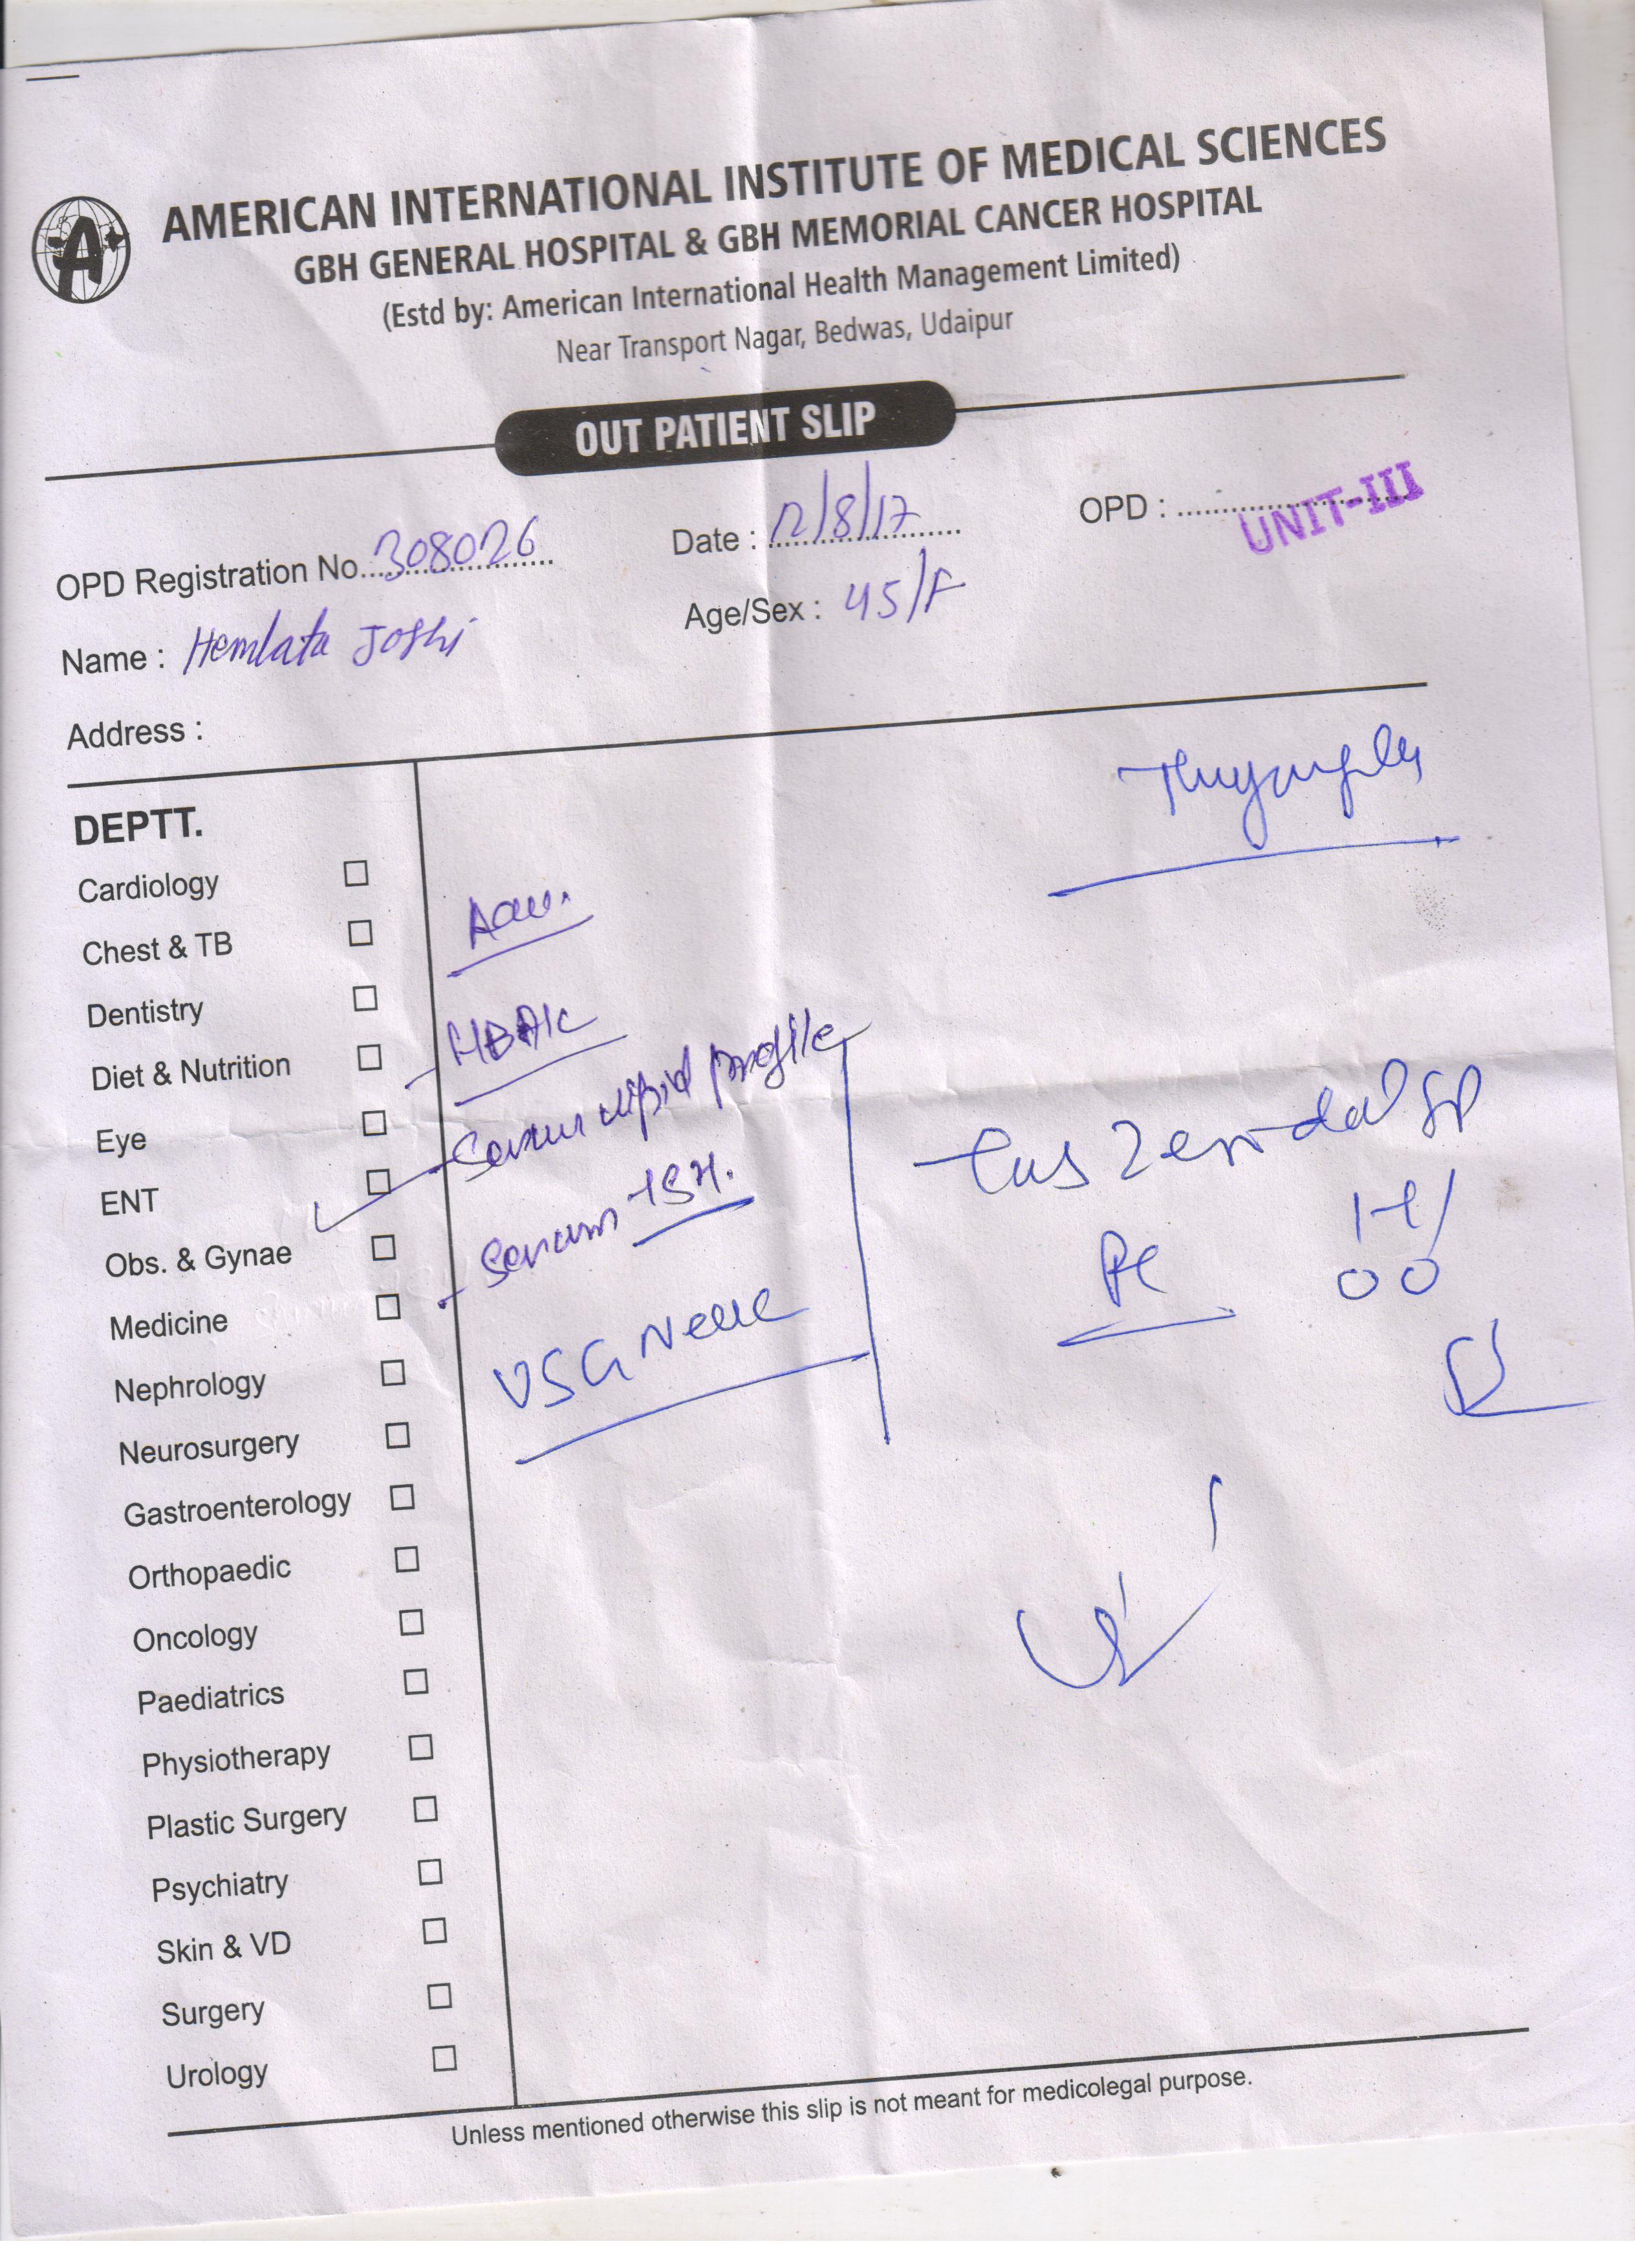 AMERICAN INTERNATIONAL INSTITUTE OF MEDICAL SCIENCES
GBH GENERAL HOSPITAL & GBH MEMORIAL CANCER HOSPITAL
(Estd by: American International Health Management Limited)
Near Transport Nagar, Bedwas, Udaipur
OUT PATIENT SLIP
OPD Registration No. 308026 Date : 12/8/17 OPD : UNIT-III
Name : Hemlata Joshi Age/Sex : 45/F
Address :
DEPTT.
Cardiology
Chest & TB
Dentistry
Diet & Nutrition
Eye
ENT
Obs. & Gynae
Medicine
Nephrology
Neurosurgery
Gastroenterology
Orthopaedic
Oncology
Paediatrics
Physiotherapy
Plastic Surgery
Psychiatry
Skin & VD
Surgery
Urology
HBA1c
Serum lipid profile
Serum TSH.
USG Neck
Unless mentioned otherwise this slip is not meant for medicolegal purpose.